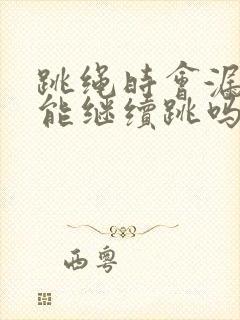 跳绳时會漏
能继續跳吗
西粤